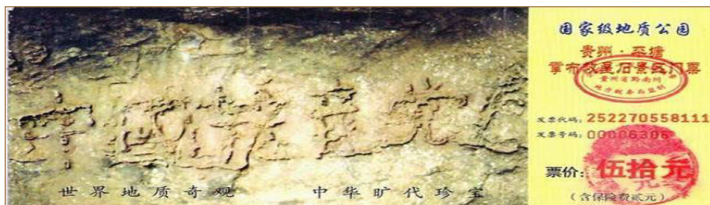 中國共产党亡
世界地质奇观 中华旷代珍宝
国家级地质公园
贵州·平塘
掌布救星石景区门票
贵州省黔南州
发票代码:252270558111
发票号码:00006306
票价:伍拾元
(含保险费贰元)